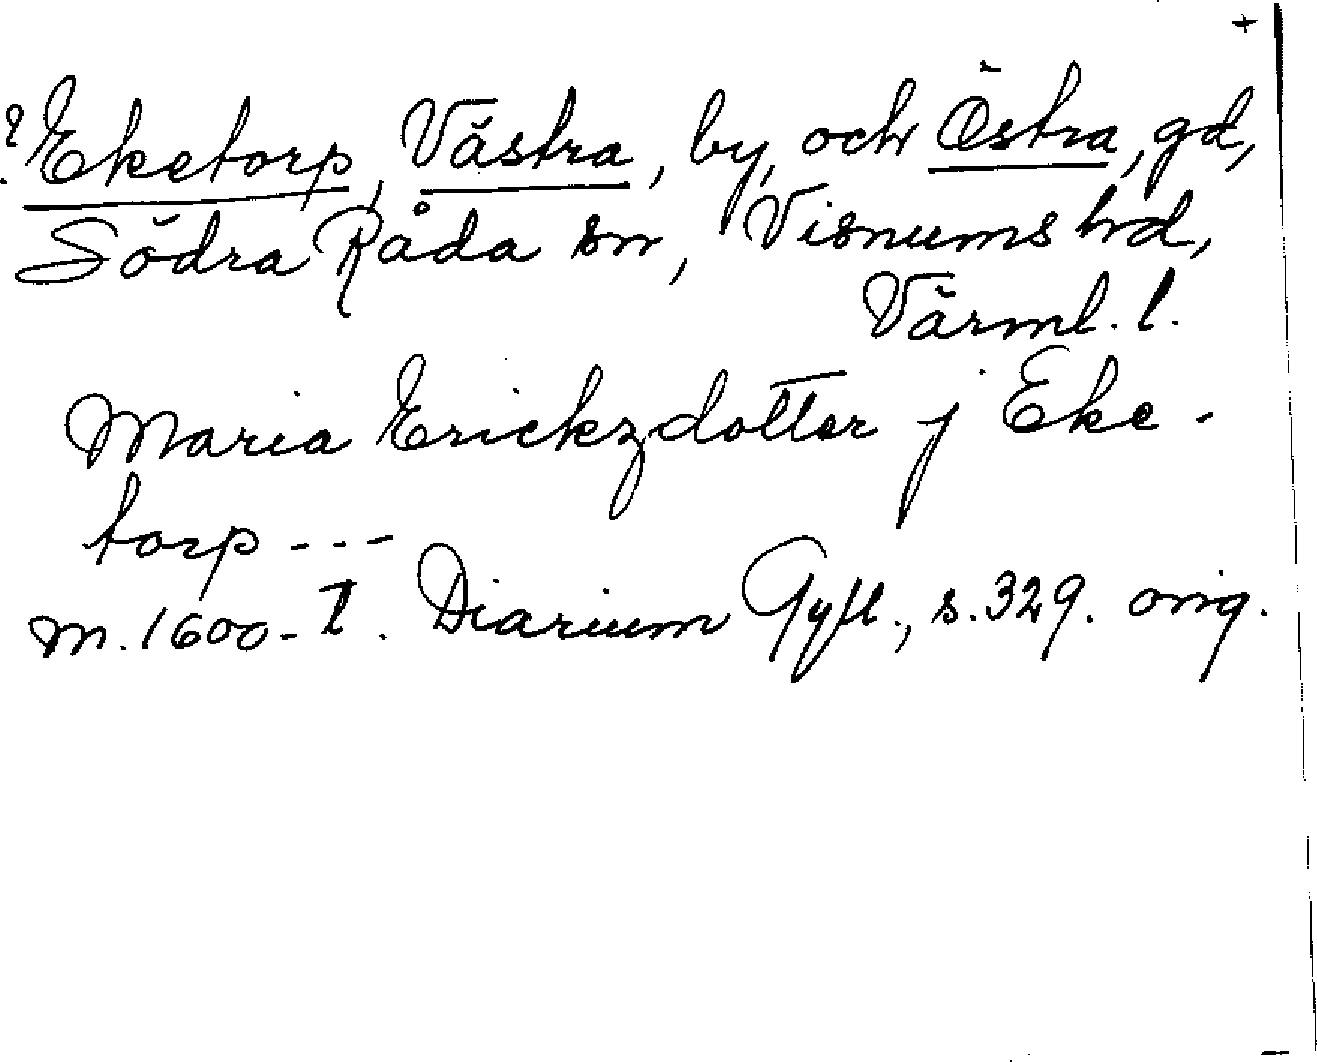 +
? Eketorp, Västra, by, och Östra, gd,
Södra Råda sn, Visnums hd,
Värml. l.
Maria Erickzdotter j Eke-
torp ---
m. 1600-t. Diarium Gyll., s. 329. orig.